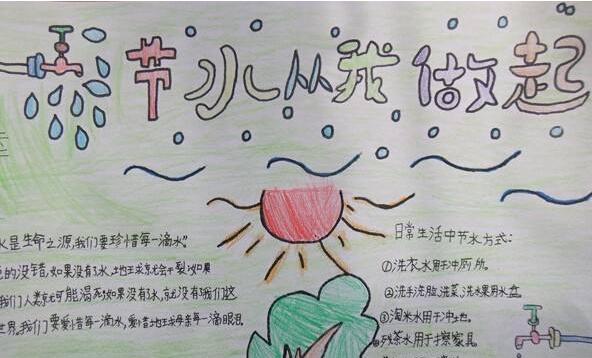 节水从我做起
水是生命之源,我们要珍惜每一滴水。"
的没错,如果没有水,地球就会干裂,如果
我们人类就可能渴死,如果没有水,就没有我们这
世界。我们要爱惜每一滴水,爱惜地球母亲每一滴眼泪。
日常生活中节水方式:
①洗衣水用于冲厕所。
②洗手、洗脸、洗菜、洗水果用水盆
③淘米水用于冲地。
④残茶水用于擦家具